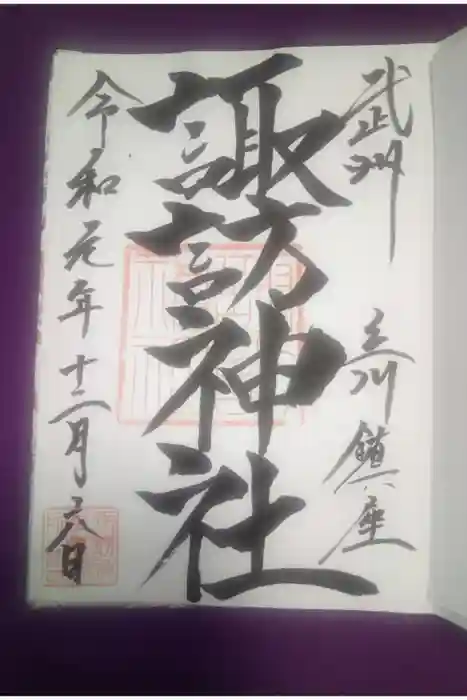 武州 立川鎮座
諏訪神社
令和元年十二月二八日